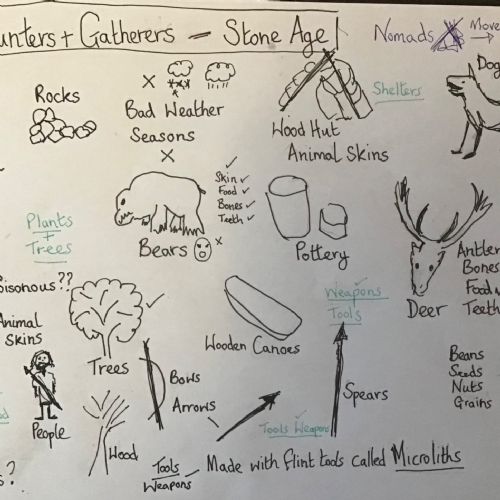 unters + Gatherers - Stone Age
Nomads → Move
Dog
Rocks
Bad Weather
Seasons
Shelters
Wood Hut
Animal Skins
Skin ✓
Food ✓
Bones ✓
Teeth ✓
Plants
+
Trees
Bears
Pottery
Antler
Bones
Food
Teeth
Deer
oisonous??
Animal
Skins
Trees
Wooden Canoes
Weapons
Tools
Bows
Arrows
Spears
Beans
Seeds
Nuts
Grains
People
Wood
Tools Weapons
s?
Tools
Weapons
Made with flint tools called Microliths